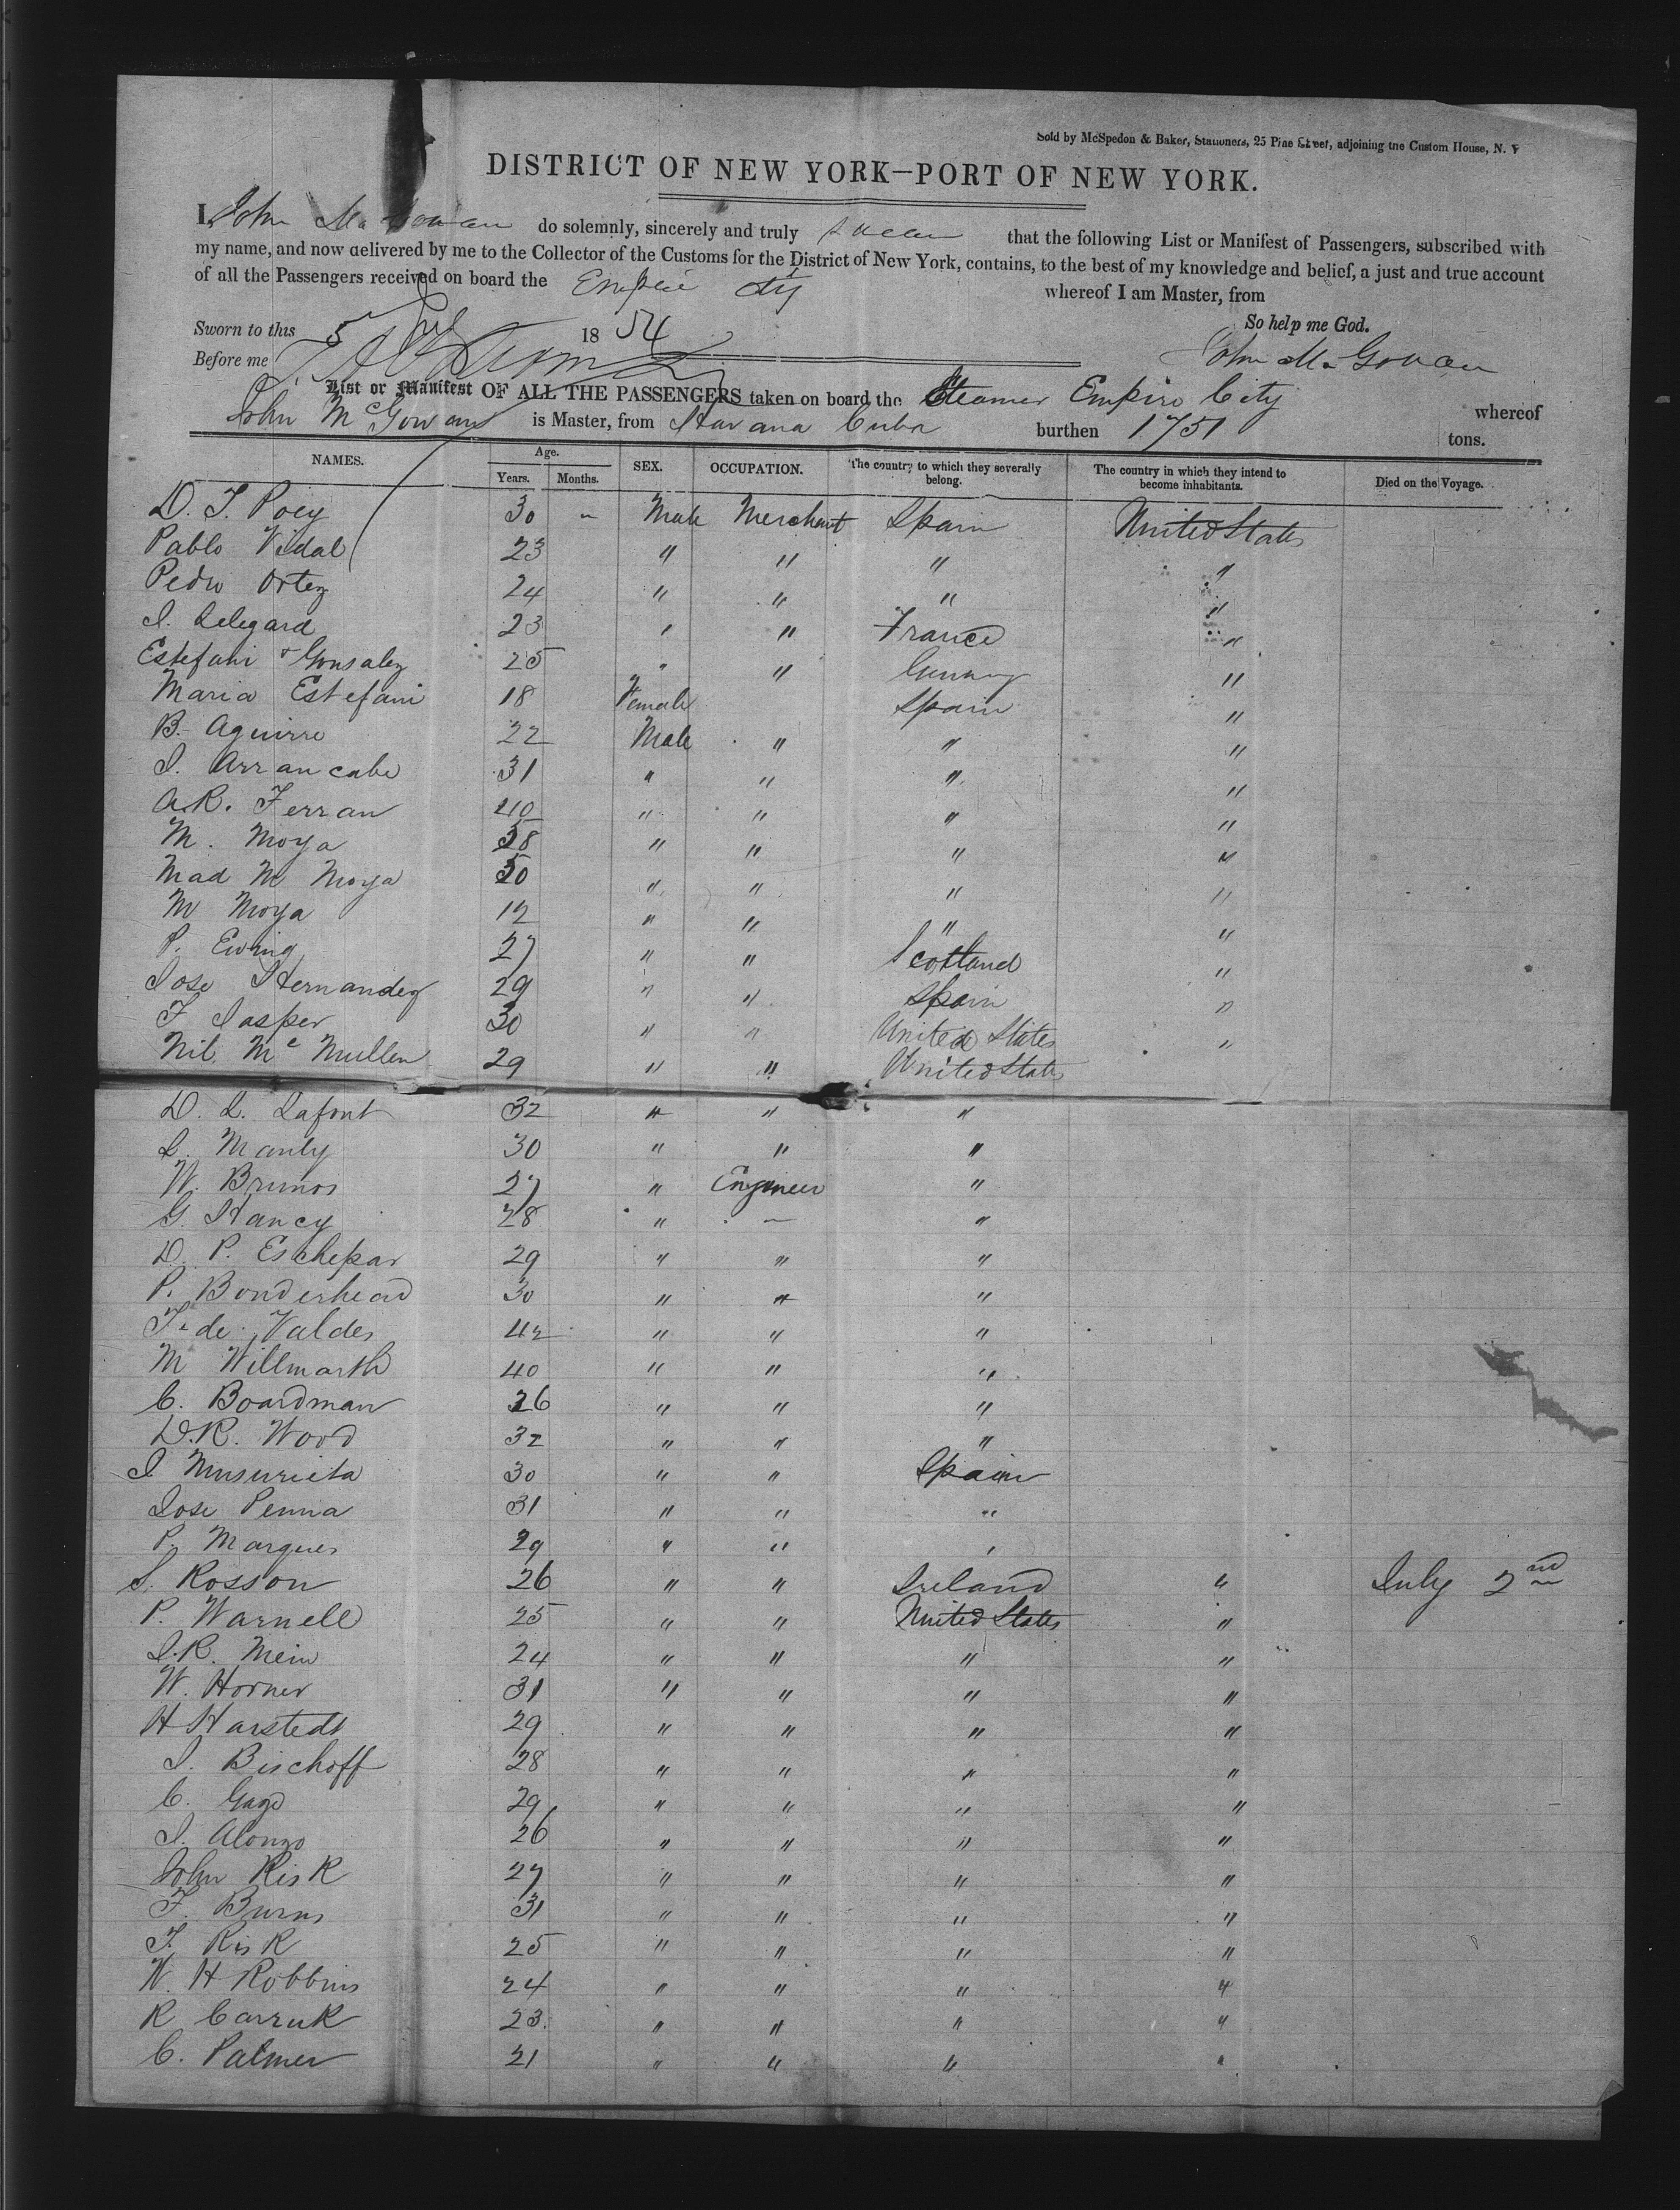 Sold by McSpedon & Baker, Stationers, 25 Pine Street, adjoining the Custom House, N. Y
DISTRICT OF NEW YORK—PORT OF NEW YORK.
I, John McGowan do solemnly, sincerely and truly swear that the following List or Manifest of Passengers, subscribed with
my name, and now delivered by me to the Collector of the Customs for the District of New York, contains, to the best of my knowledge and belief, a just and true account
of all the Passengers received on board the Empire City whereof I am Master, from
Sworn to this 5 July 1854 So help me God.
Before me John McGowan
List or Manifest OF ALL THE PASSENGERS taken on board the Steamer Empire City whereof
John McGowan is Master, from Havana Cuba burthen 1751 tons.
NAMES. Age. Years. Months. SEX. OCCUPATION. The country to which they severally belong. The country in which they intend to become inhabitants. Died on the Voyage.
D. J. Poey 30 - Male Merchant Spain United States
Pablo Vidal 23 " " " "
Pedro Ortez 24 " " " "
J. Delegard 23 " " France "
Estefani & Gonsalez 25 " " "
Maria Estefani 18 Female Spain "
B. Aguirre 22 Male " " "
J. Arrancabe 31 " " " "
A.R. Ferran 40 " " " "
M. Moya 38 " " " "
Mad M Moya 30 " " " "
M Moya 12 " " " "
P. Ewing 27 " " Scotland "
Jose Hernandez 29 " " Spain "
F Jasper 30 " " United States "
Nil McMullen 29 " " United States
D. L. Lafont 32 " " "
L. Manly 30 " " "
W. Brunos 27 " Engineer "
G. Hancy 28 " - "
D. P. Eschepar 29 " " "
P. Bonderhead 30 " " "
F. de Valdes 42 " " "
M Willmarth 40 " " "
C. Boardman 26 " " "
D.R. Wood 32 " " "
J. Musurieta 30 " " Spain
Jose Penna 31 " " "
P. Marques 29 " " "
S. Rosson 26 " " Ireland " July 2nd
P. Warnell 25 " " United States "
J.R. Mein 24 " " " "
W. Horner 31 " " " "
H Harstedt 29 " " " "
J. Bischoff 28 " " " "
C. Gage 29 " " " "
J. Alonzo 26 " " " "
John Risk 27 " " " "
F. Burns 31 " " " "
F. Risk 25 " " " "
W. H Robbins 24 " " " "
R Carruk 23 " " " "
C. Palmer 21 " " " "